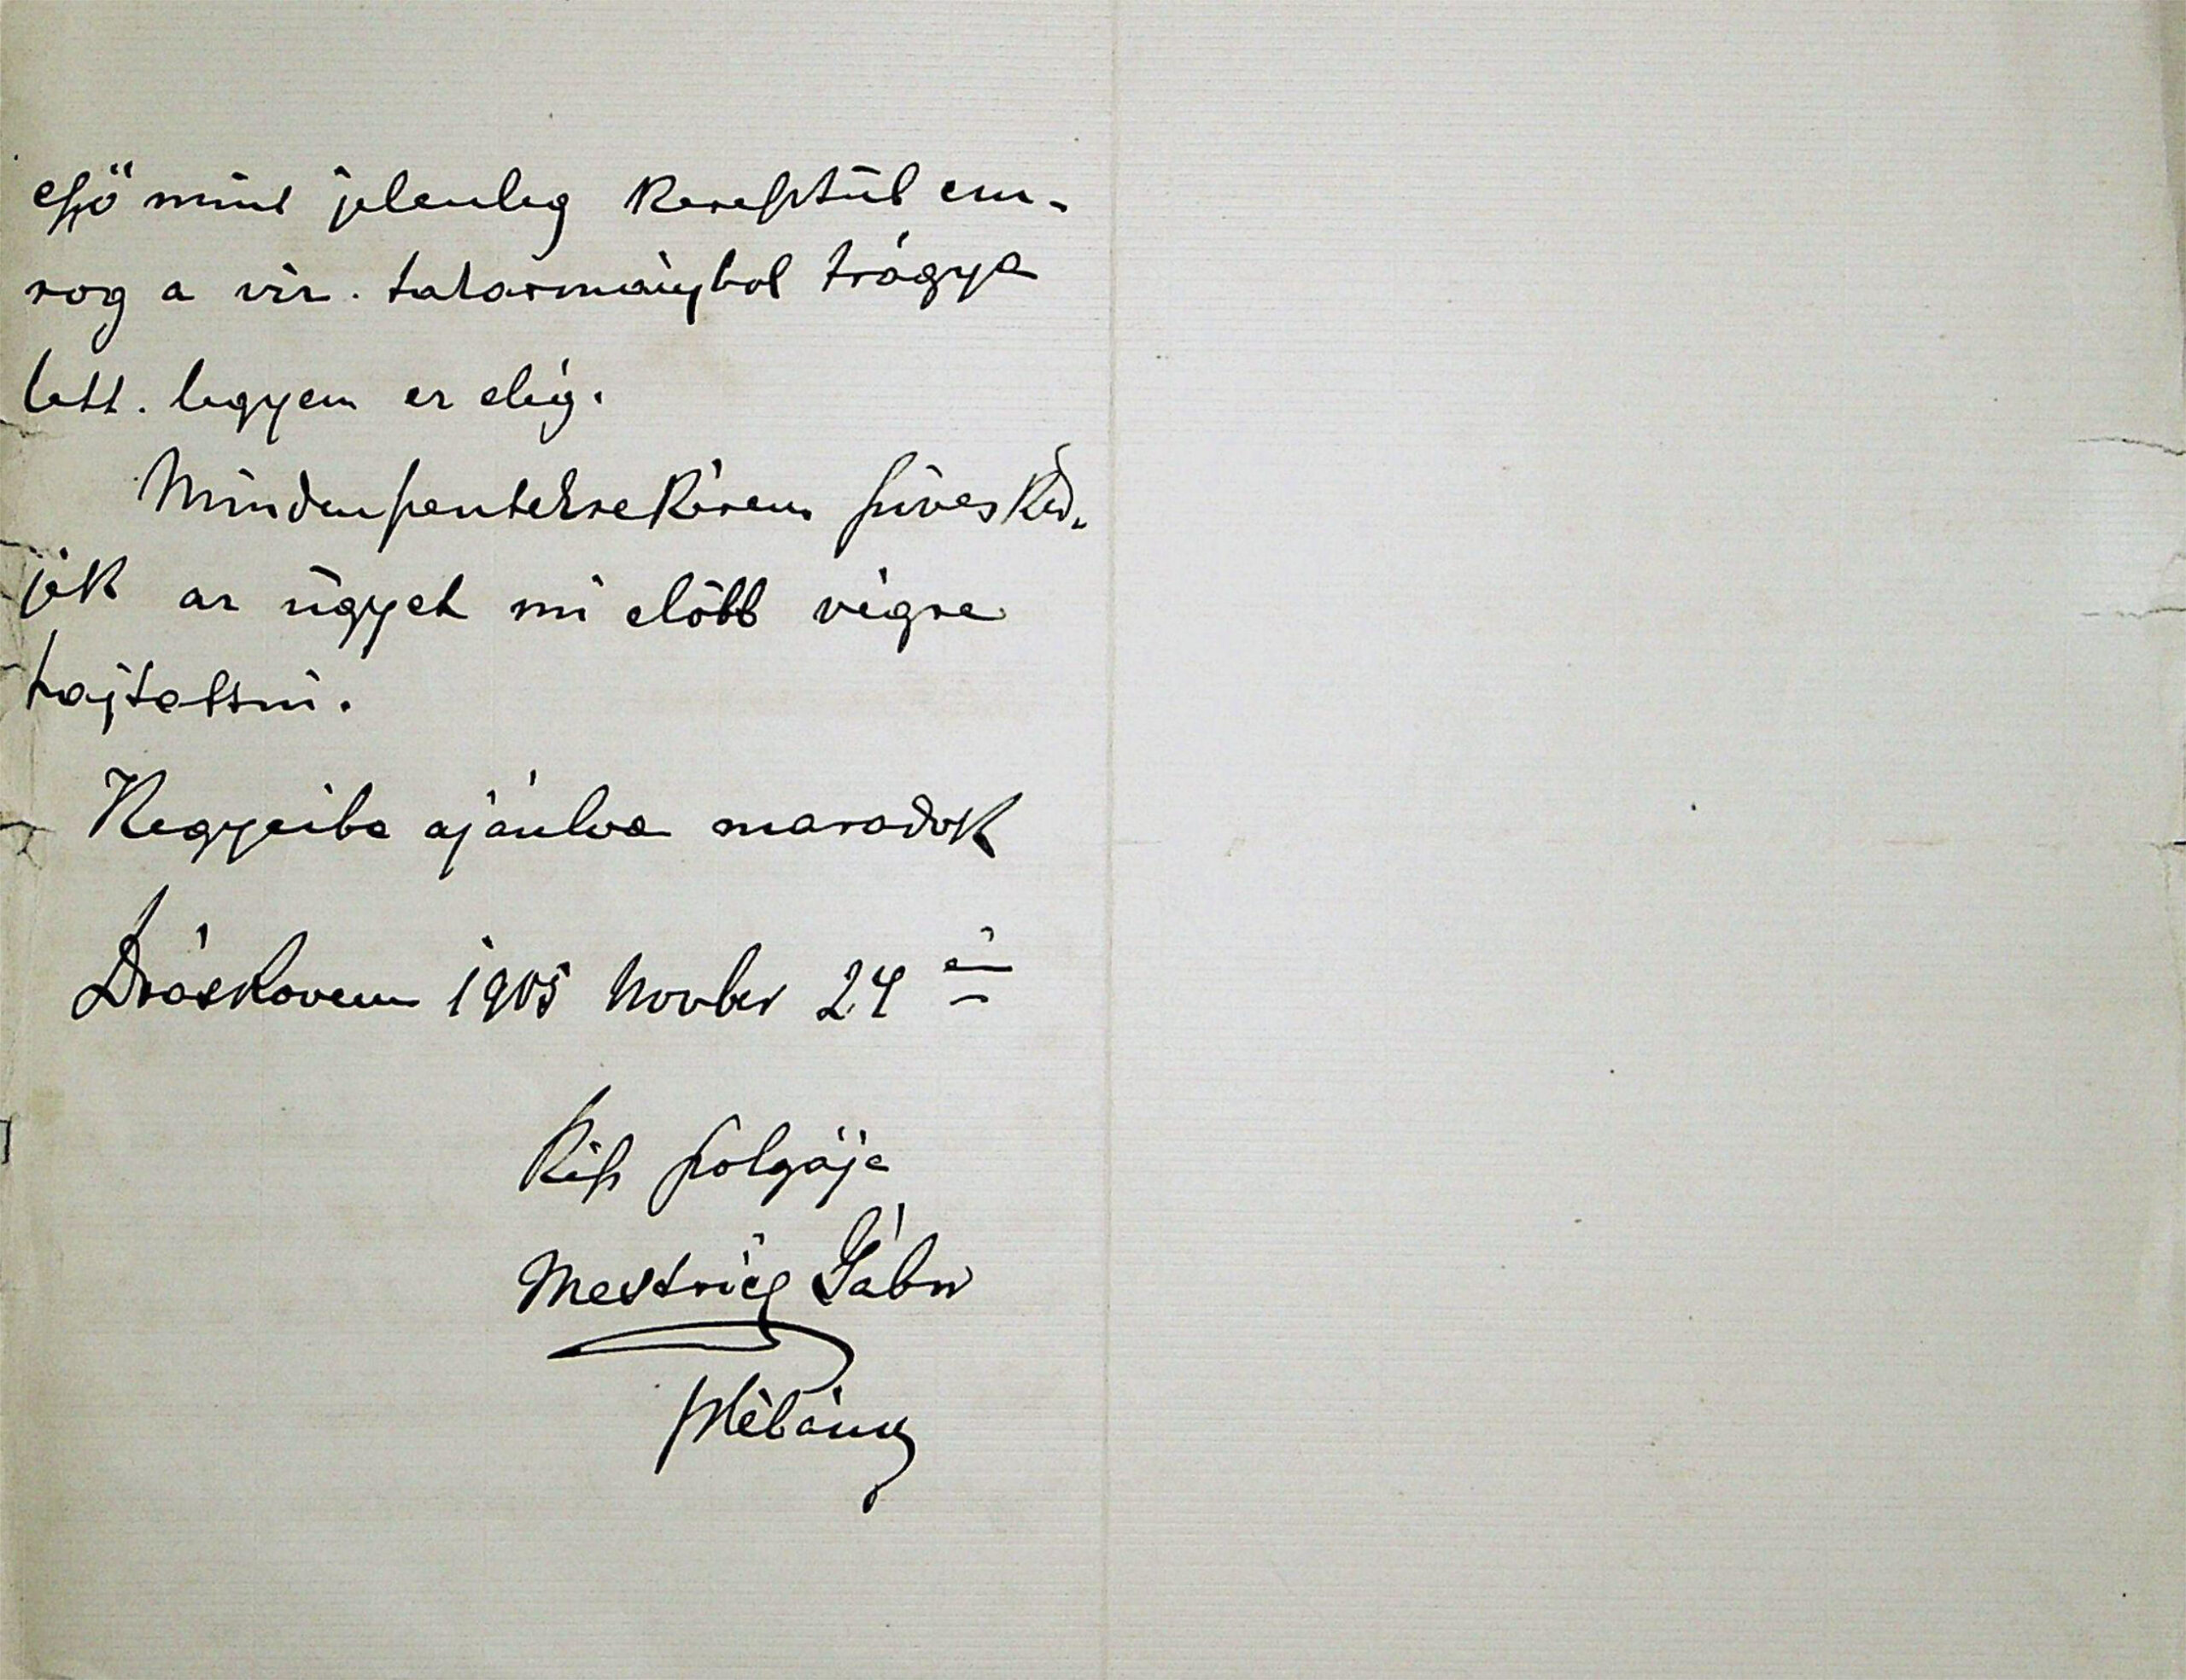 eső mint jelenleg keresztül cur-
rog a víz. takarmányból trágya
lett. legyen ez elég.
Mindenszentekre kérem szíves ked-
jék az ügyet mi előbb végre
hajtatni.
Kegyeibe ajánlva maradok
Dráskovecz 1905 Novber 24 én
kész szolgája
Mestrics Gábor
plébános